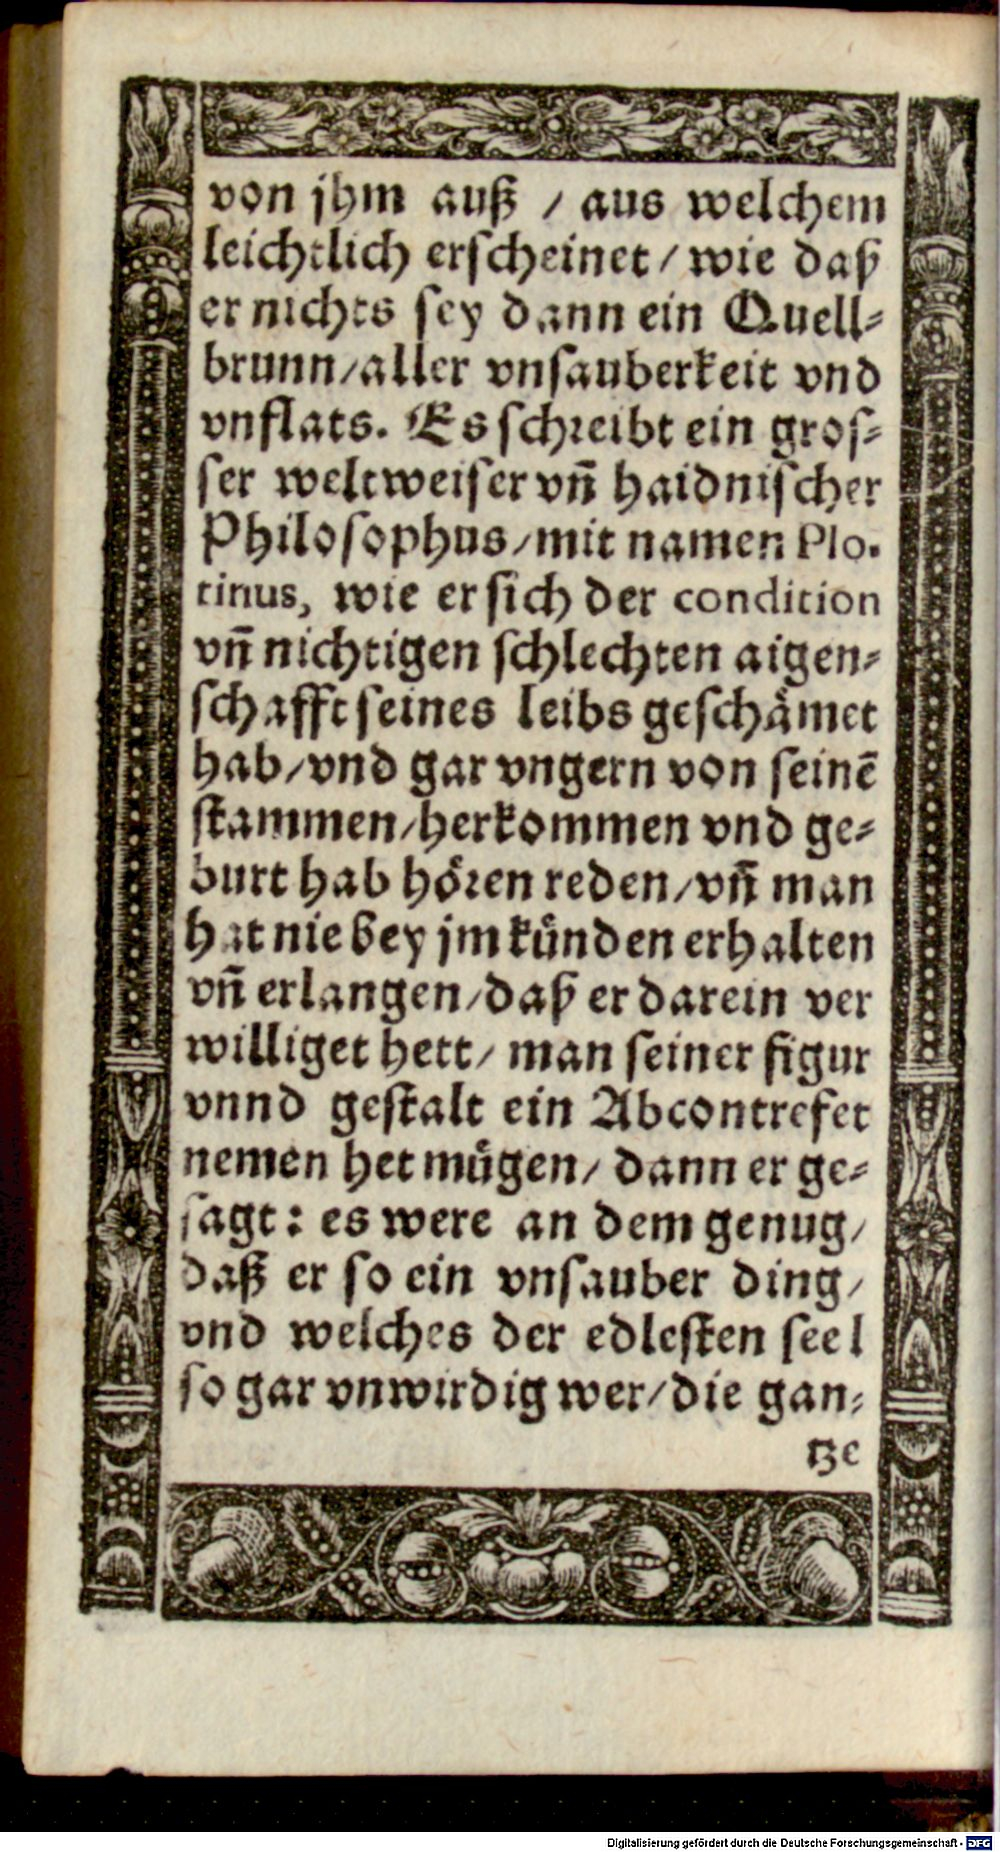 von jhm auß / aus welchem
leichtlich erscheinet / wie daß
er nichts sey dann ein Quell-
brunn / aller vnsauberkeit vnd
vnflats. Es schreibt ein gros-
ser weltweiser vñ haidnischer
Philosophus / mit namen Plo-
tinus, wie er sich der condition
vñ nichtigen schlechten aigen-
schafft seines leibs geschämet
hab / vnd gar vngern von seinē
stammen / herkommen vnd ge-
burt hab hören reden / vñ man
hat nie bey jm künden erhalten
vñ erlangen / daß er darein ver
williget hett / man seiner figur
vnnd gestalt ein Abcontrefet
nemen het mügen / dann er ge-
sagt: es were an dem genug /
daß er so ein vnsauber ding /
vnd welches der edlesten seel
so gar vnwirdig wer / die gan-
tze
Digitalisierung gefördert durch die Deutsche Forschungsgemeinschaft - DFG